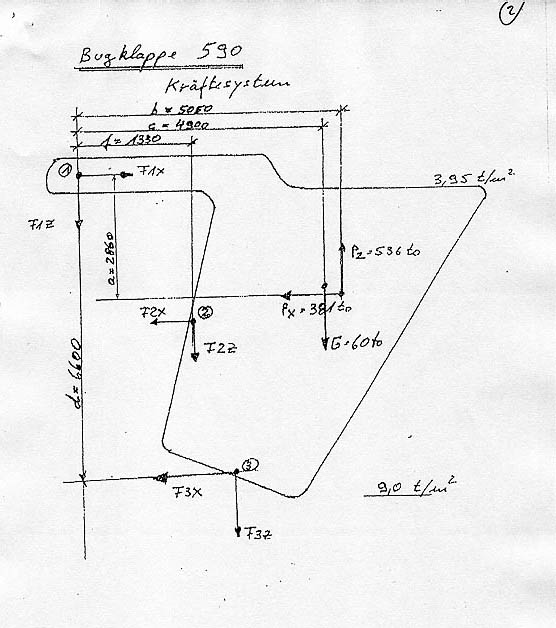 2
Bugklappe 590
Kräftesystem
b = 5080
c = 4900
f = 1330
1
F1X
3,95 t/m²
F1Z
a = 2860
Pz = 536 to
Px = 381 to
F2X
2
F2Z
G = 60 to
d = 6600
3
F3X
9,0 t/m²
F3Z